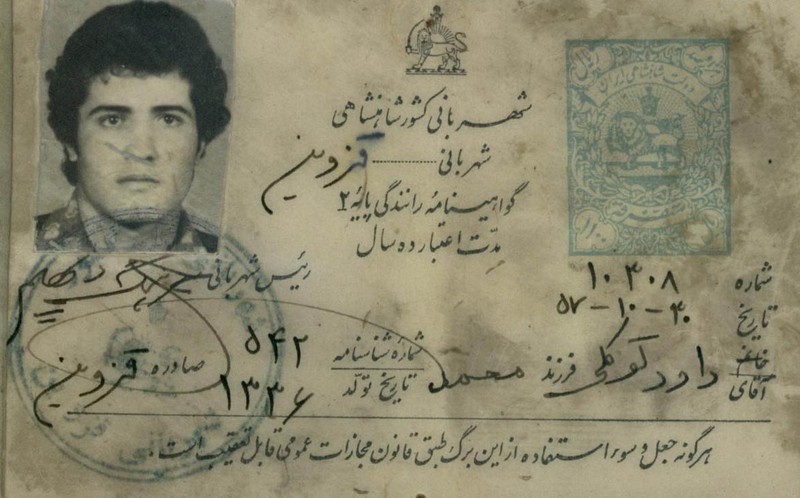 شهربانی کشور شاهنشاهی
شهربانی قزوین
گواهینامهٔ رانندگی پایهٔ ۲
مدّت اعتبار ده سال
دولت شاهنشاهی ایران
رئیس شهربانی
شماره ۱۰۳۰۸
تاریخ ۳۰-۱۰-۵۷
خانم
آقای داود گوگلی فرزند محمد شمارهٔ شناسنامه ۵۴۲ صادره قزوین
تاریخ تولّد ۱۳۳۶
هرگونه جعل و سوء استفاده از این برگ طبق قانون مجازات عمومی قابل تعقیب است.